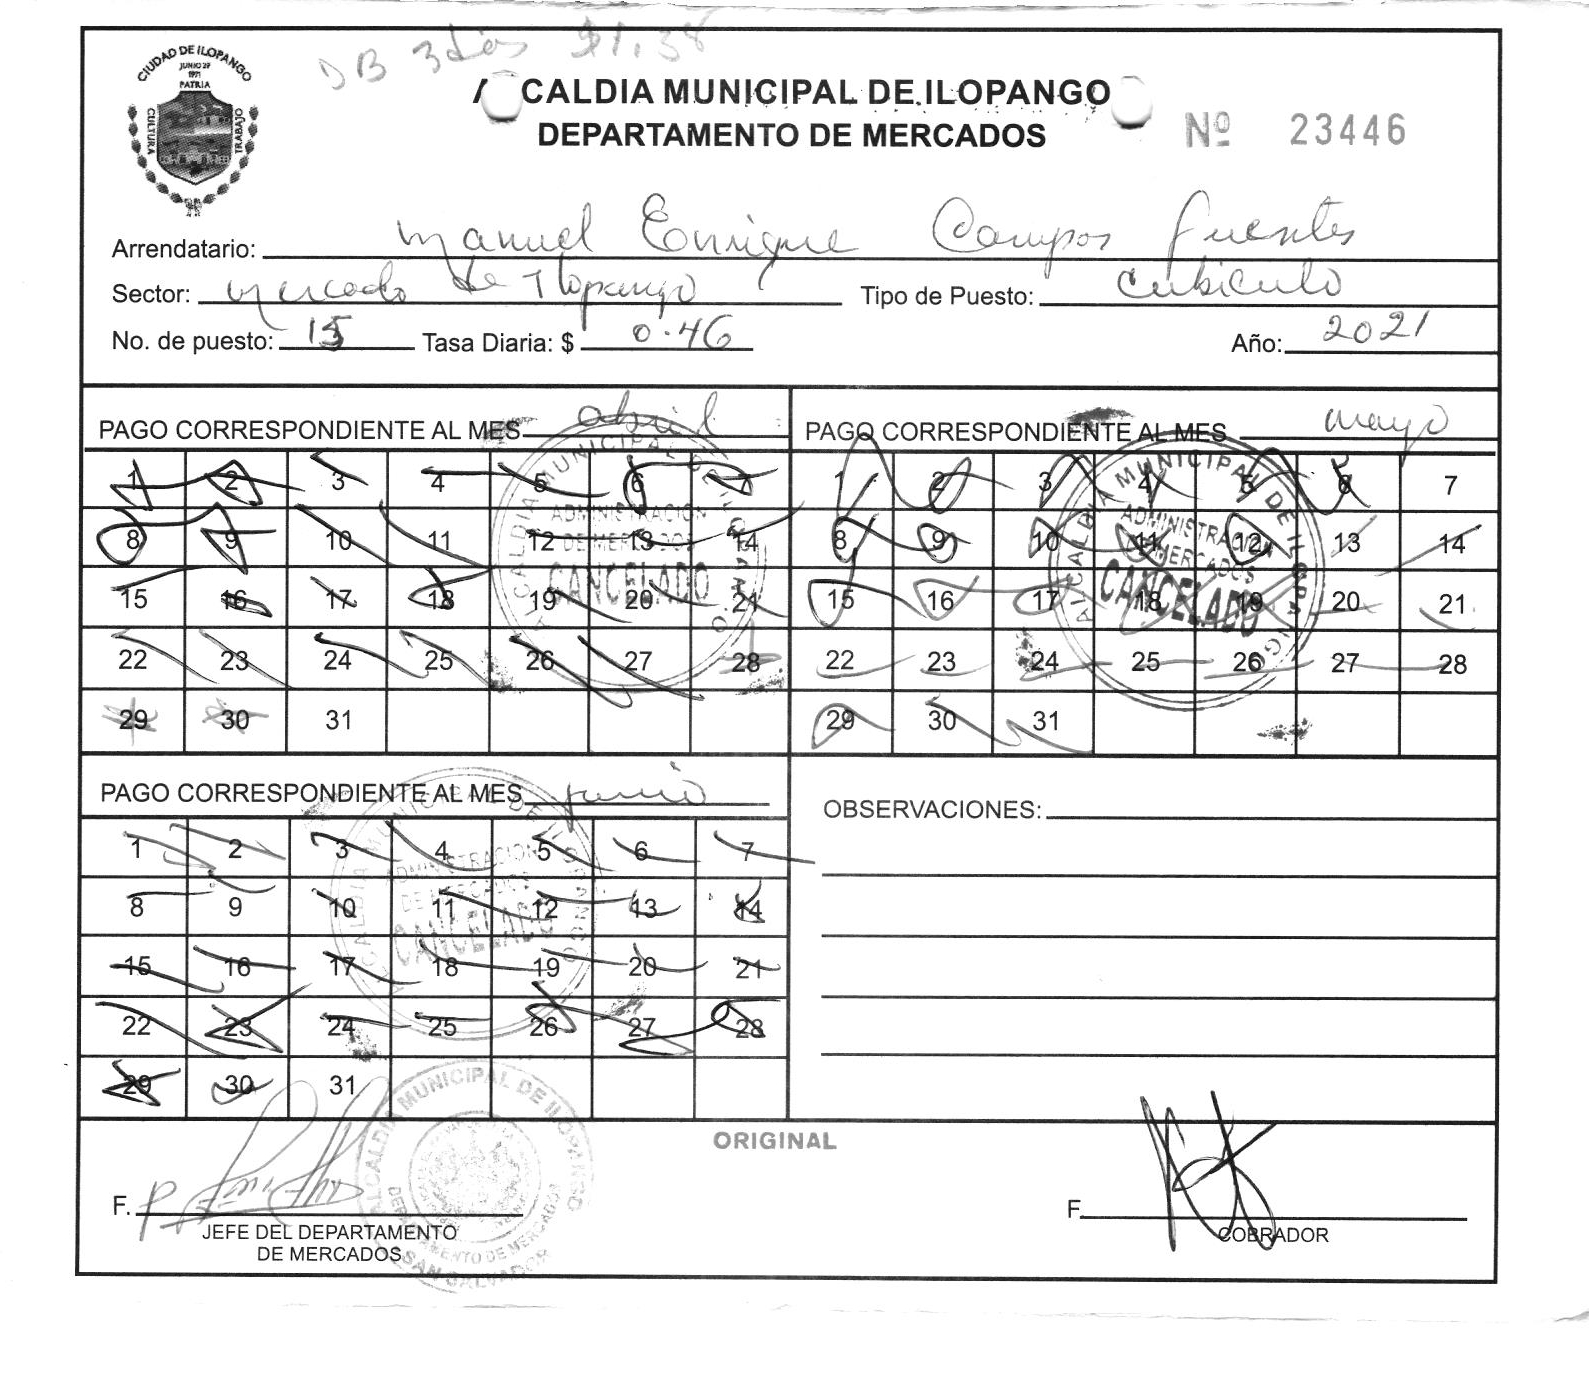 DB 3 días $1.38
CIUDAD DE ILOPANGO
JUNIO 29
1971
PATRIA
CULTURA
TRABAJO
ALCALDIA MUNICIPAL DE ILOPANGO
DEPARTAMENTO DE MERCADOS
Nº 23446
Arrendatario: Manuel Enrique Campos Fuentes
Sector: Mercado de Ilopango Tipo de Puesto: Cubiculo
No. de puesto: 15 Tasa Diaria: $ 0.46 Año: 2021
PAGO CORRESPONDIENTE AL MES abril
1 2 3 4 5 6 7
8 9 10 11 12 13 14
15 16 17 18 19 20 21
22 23 24 25 26 27 28
29 30 31
ALCALDIA MUNICIPAL DE ILOPANGO
ADMINISTRACION
DE MERCADOS
CANCELADO
PAGO CORRESPONDIENTE AL MES mayo
1 2 3 4 5 6 7
8 9 10 11 12 13 14
15 16 17 18 19 20 21
22 23 24 25 26 27 28
29 30 31
ALCALDIA MUNICIPAL DE ILOPANGO
ADMINISTRACION
DE MERCADOS
CANCELADO
PAGO CORRESPONDIENTE AL MES junio
1 2 3 4 5 6 7
8 9 10 11 12 13 14
15 16 17 18 19 20 21
22 23 24 25 26 27 28
29 30 31
ALCALDIA MUNICIPAL DE ILOPANGO
ADMINISTRACION
DE MERCADOS
CANCELADO
OBSERVACIONES:
ORIGINAL
F.
JEFE DEL DEPARTAMENTO
DE MERCADOS
ALCALDIA MUNICIPAL DE ILOPANGO
DEPARTAMENTO DE MERCADOS
SAN SALVADOR
F.
COBRADOR